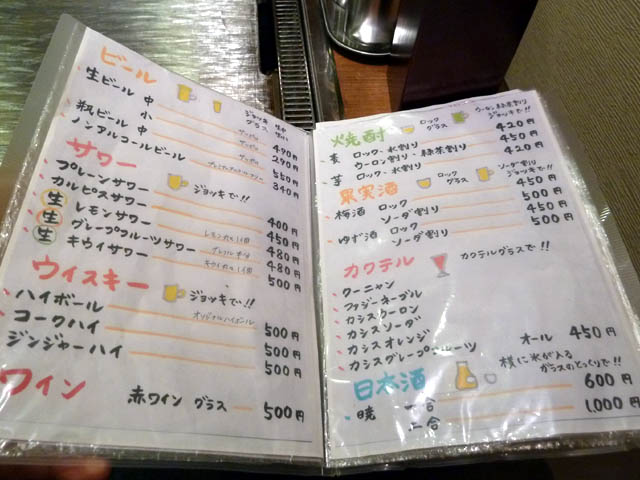 ビール
ジョッキ 生中
グラス 生小
生ビール 中 サッポロ 490円
小 サッポロ 290円
瓶ビール 中 サッポロ 550円
ノンアルコールビール 340円
サワー ジョッキで!!
プレーンサワー 400円
カルピスサワー 450円
生 レモンサワー レモン 480円
生 グレープフルーツサワー 480円
生 キウイサワー キウイ 500円
ウイスキー ジョッキで!!
ハイボール オリジナルハイボール 500円
コークハイ 500円
ジンジャーハイ 500円
ワイン
赤ワイン グラス 500円
焼酎 ロックグラス ウーロン・緑茶割り ジョッキで!!
麦 ロック・水割り 420円
ウーロン割り・緑茶割り 450円
芋 ロック・水割り 420円
果実酒 ロックグラス ソーダ割り ジョッキで!!
梅酒 ロック 450円
ソーダ割り 500円
ゆず酒 ロック 450円
ソーダ割り 500円
カクテル カクテルグラスで!!
クーニャン
ファジーネーブル
カシスウーロン
カシスソーダ
カシスオレンジ
カシスグレープフルーツ
オール 450円
日本酒 横に氷が入るガラスのとっくりで!!
暁 一合 600円
二合 1,000円